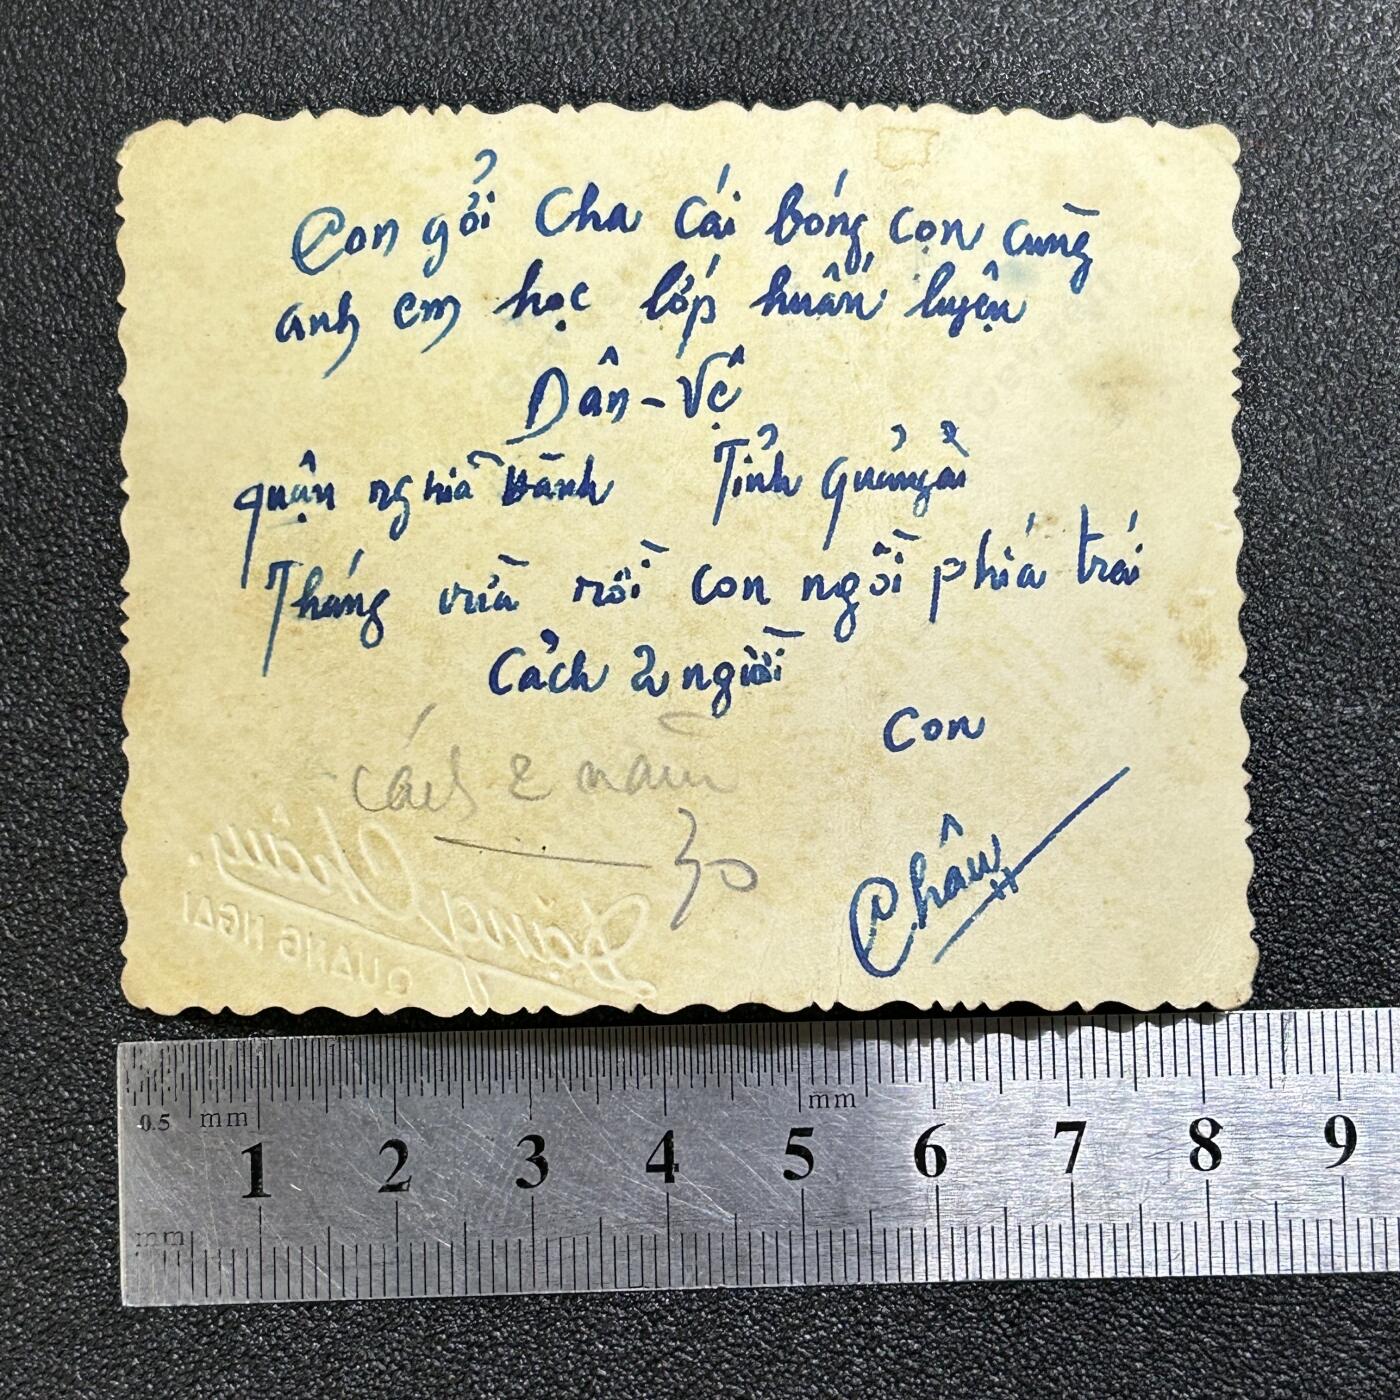 Con gởi Cha Cái bóng con cùng
anh em học lớp huấn luyện
Dân-Vệ
quận nghĩa Hành Tỉnh Quảngãi
Tháng vừa rồi con ngồi phiá trái
Cách 2 người
Con
Châu
cách 2 năm
30
Đặng Châu
QUANG NGAI
0.5 mm mm
1 2 3 4 5 6 7 8 9
mm